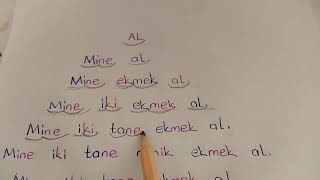 AL
Mine al
Mine ekmek al.
Mine iki ekmek al.
Mine iki tane ekmek al.
Mine iki tane ekmek al.